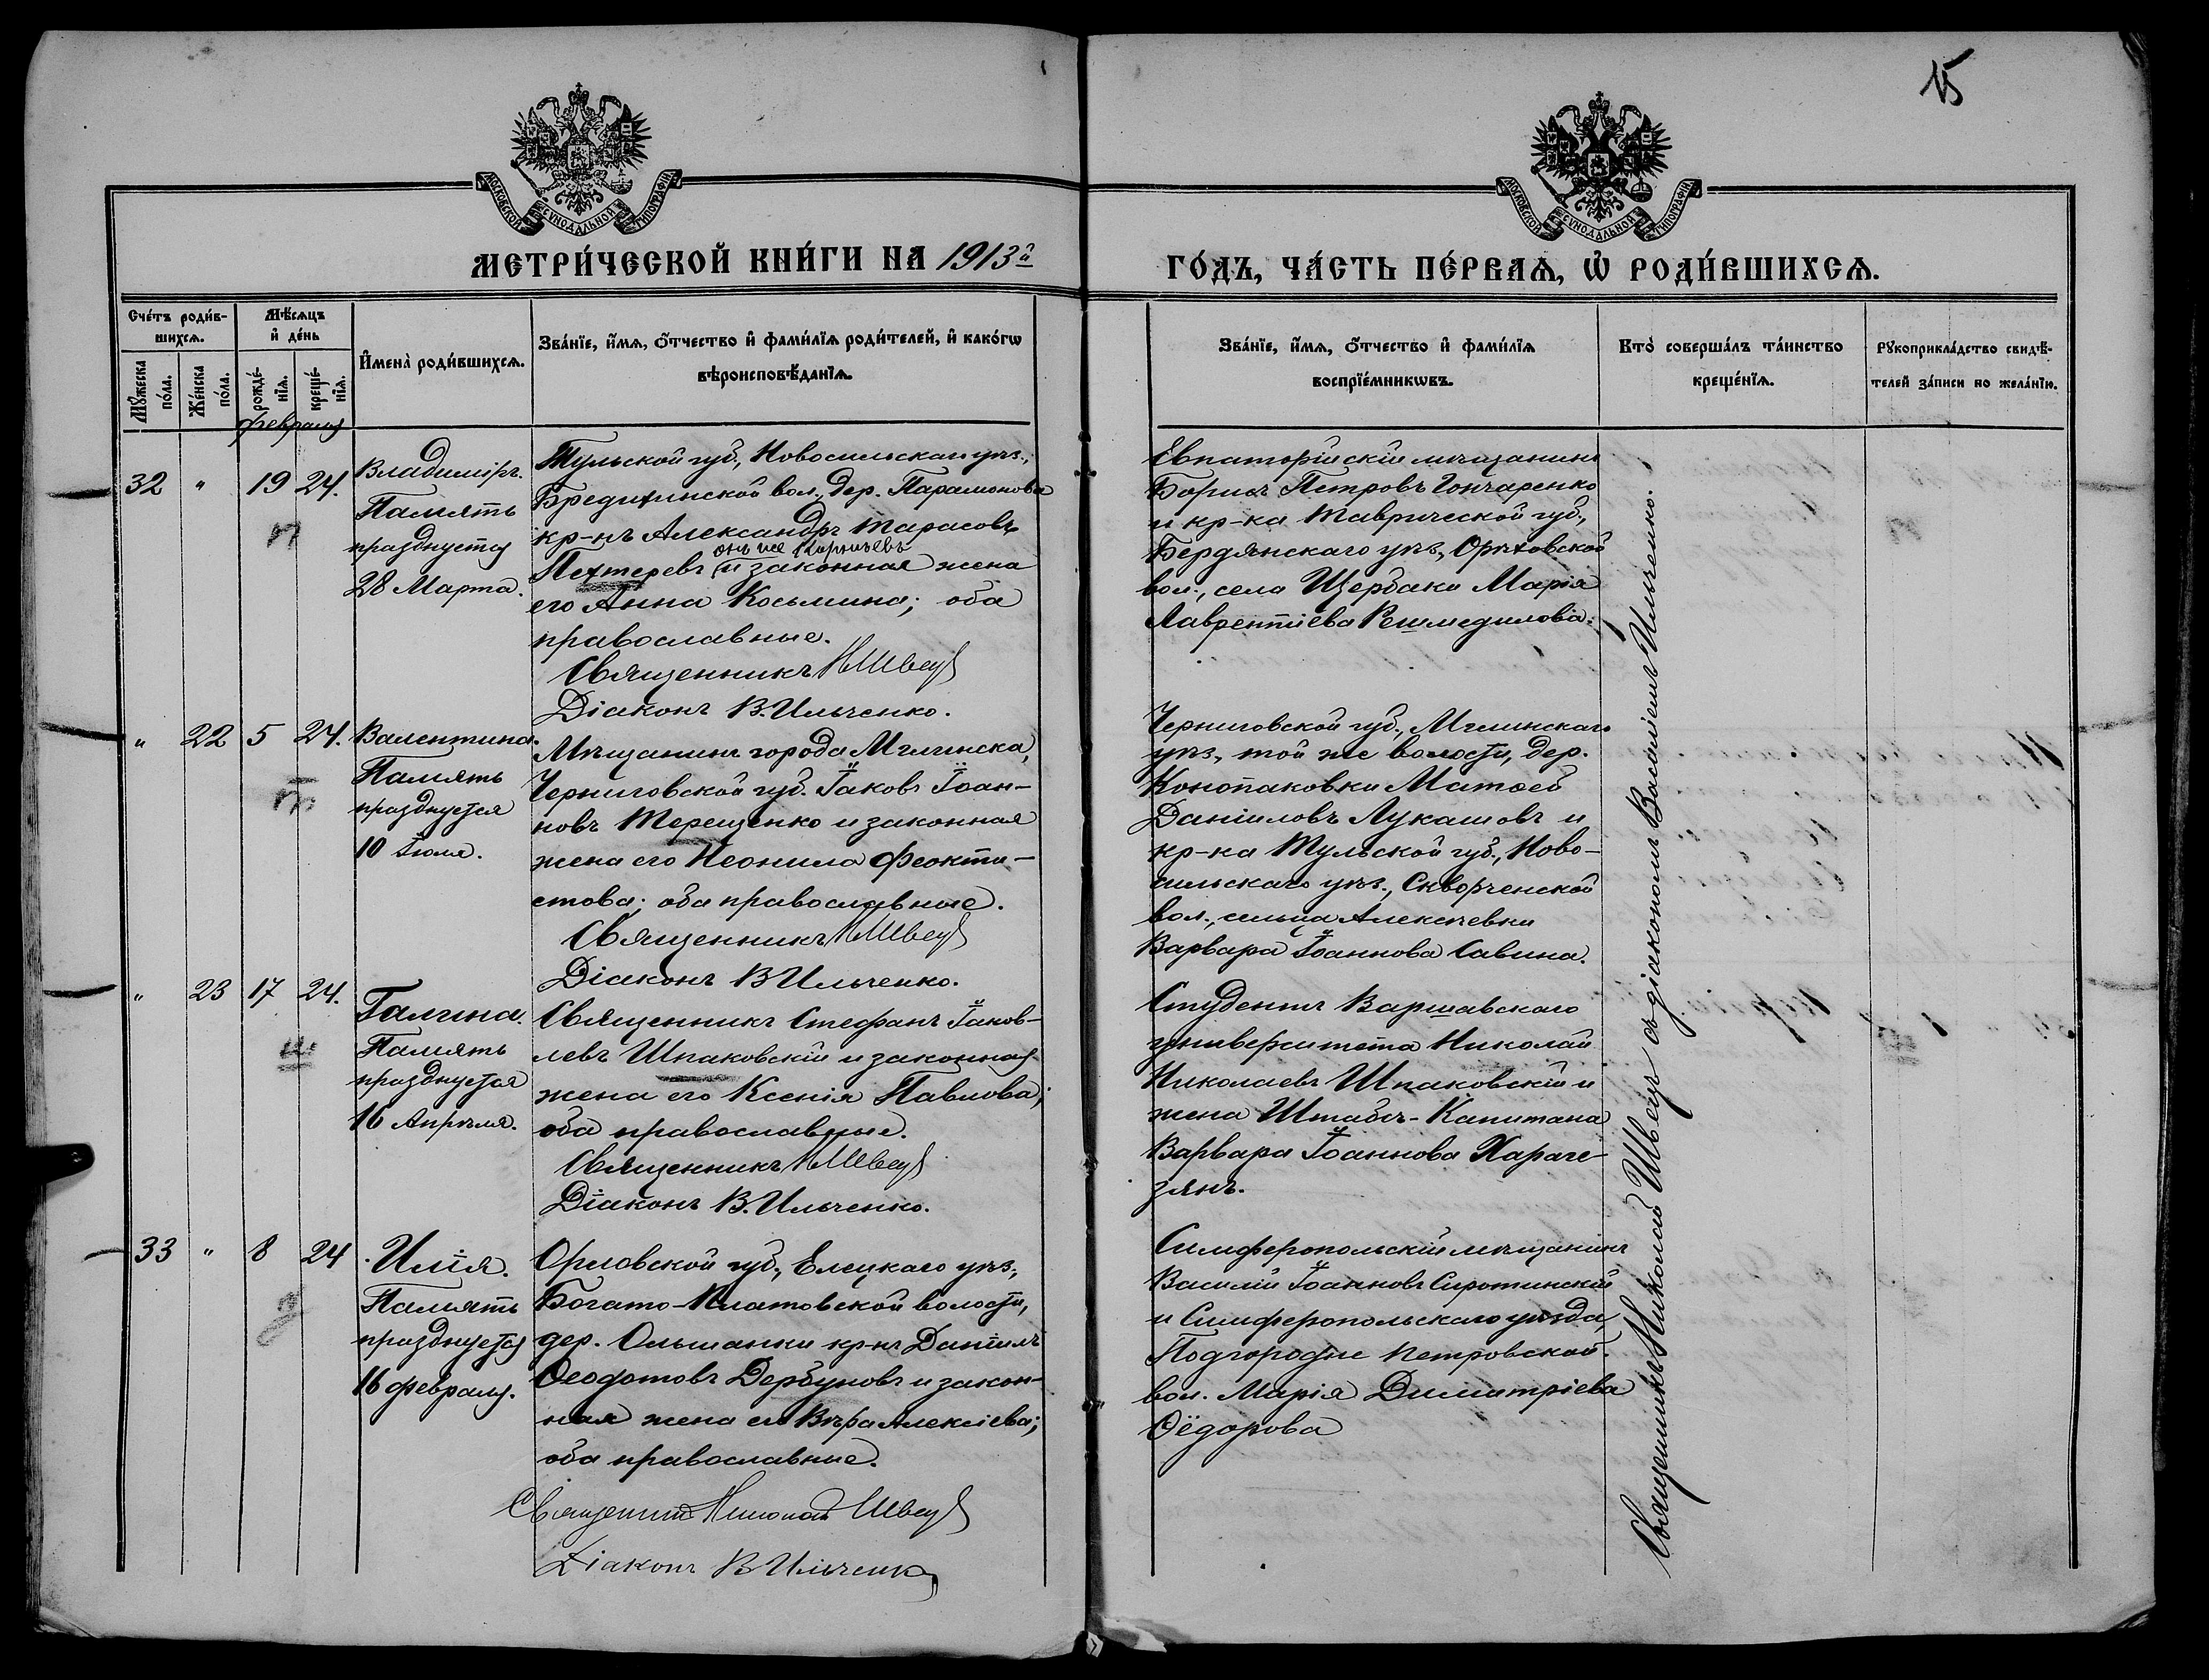 15
МОСКОВСКОЙ СѴНОДАЛЬНОЙ ТИПОГРАФІИ
МОСКОВСКОЙ СѴНОДАЛЬНОЙ ТИПОГРАФІИ
МЕТРИ́ЧЕСКОЙ КНИ́ГИ НА 1913й
ГО́ДЪ, ЧА́СТЬ ПЕ́РВАѦ, Ѽ РОДИ́ВШИХСѦ.
Сче́тъ роди́в-
шихсѧ.
Мꙋ́жеска по́ла.
Же́нска по́ла.
Мѣ́сѧцъ
и҆ де́нь
рожде́-
нїѧ.
креще́-
нїѧ.
И҆мена̀ роди́вшихсѧ.
Зва́нїе, и҆́мѧ, ѻ҆́тчество и҆ фами́лїѧ роди́телей, и҆ како́гѡ
вѣроисповѣ́данїѧ.
Зва́нїе, и҆́мѧ, ѻ҆́тчество и҆ фами́лїѧ
воспрїе́мникѡвъ.
Кто̀ соверша́лъ та́инство
креще́нїѧ.
Рꙋкоприкла́дство свидѣ́-
телей за́писи по жела́нїю.
февраля
32 " 19 24.
Владиміръ.
Память
празднуется
28 Марта.
Тульской губ., Новосильскаго уѣз.,
вол., дер. Парамонова
кр-нъ Александръ Тарасовъ
онъ же Корнѣевъ
Пехтеревъ и законная жена
его Анна Косьмина; оба
православные.
Священникъ Н Швецъ
Діаконъ В. Ильченко.
Евпаторійскій мѣщанинъ
Борисъ Петровъ Гончаренко
и кр-ка Таврической губ.,
Бердянскаго уѣз., Орѣховской
вол., села Щербаки Марія
Лаврентіева
" 22 5 24.
Валентина.
Память
празднуется
10 Іюля.
Мѣщанинъ города Мглинска,
Черниговской губ. Іаковъ Іоан-
новъ Терещенко и законная
жена его Неонила Феокти-
стова; оба православные.
Священникъ Н Швецъ
Діаконъ В Ильченко.
Черниговской губ., Мглинскаго
уѣз., той же волости, дер.
Конопаковки Матѳей
Даніиловъ Лукашовъ и
кр-ка Тульской губ., Ново-
сильскаго уѣз., Скворченской
вол., сельца Алексѣевки
Варвара Іоаннова Савина.
" 23 17 24.
Галина.
Память
празднуется
16 Апрѣля.
Священникъ Стефанъ Іаков-
левъ Шпаковскій и законная
жена его Ксенія Павлова;
оба православные.
Священникъ Н Швецъ
Діаконъ В. Ильченко.
Студентъ Варшавскаго
университета Николай
Николаевъ Шпаковскій и
жена Штабсъ-Капитана
Варвара Іоаннова Хараге-
зянъ.
33 " 8 24
Илія.
Память
празднуется
16 февраля.
Орловской губ., Елецкаго уѣз.,
Богато-Платовской волости,
дер. Ольшанки кр-нъ Даніилъ
Ѳеодотовъ Дербуновъ и закон-
ная жена его Вѣра Алексіева;
оба православные.
Священникъ Николай Швецъ
Діаконъ В Ильченко
Симферопольскій мѣщанинъ
Василій Іоанновъ Сиротинскій
и Симферопольскаго уѣзда,
Подгородне Петровской
вол. Марія Димитріева
Ѳёдорова
Священникъ Николай Швецъ съ діакономъ Василіемъ Ильченко.